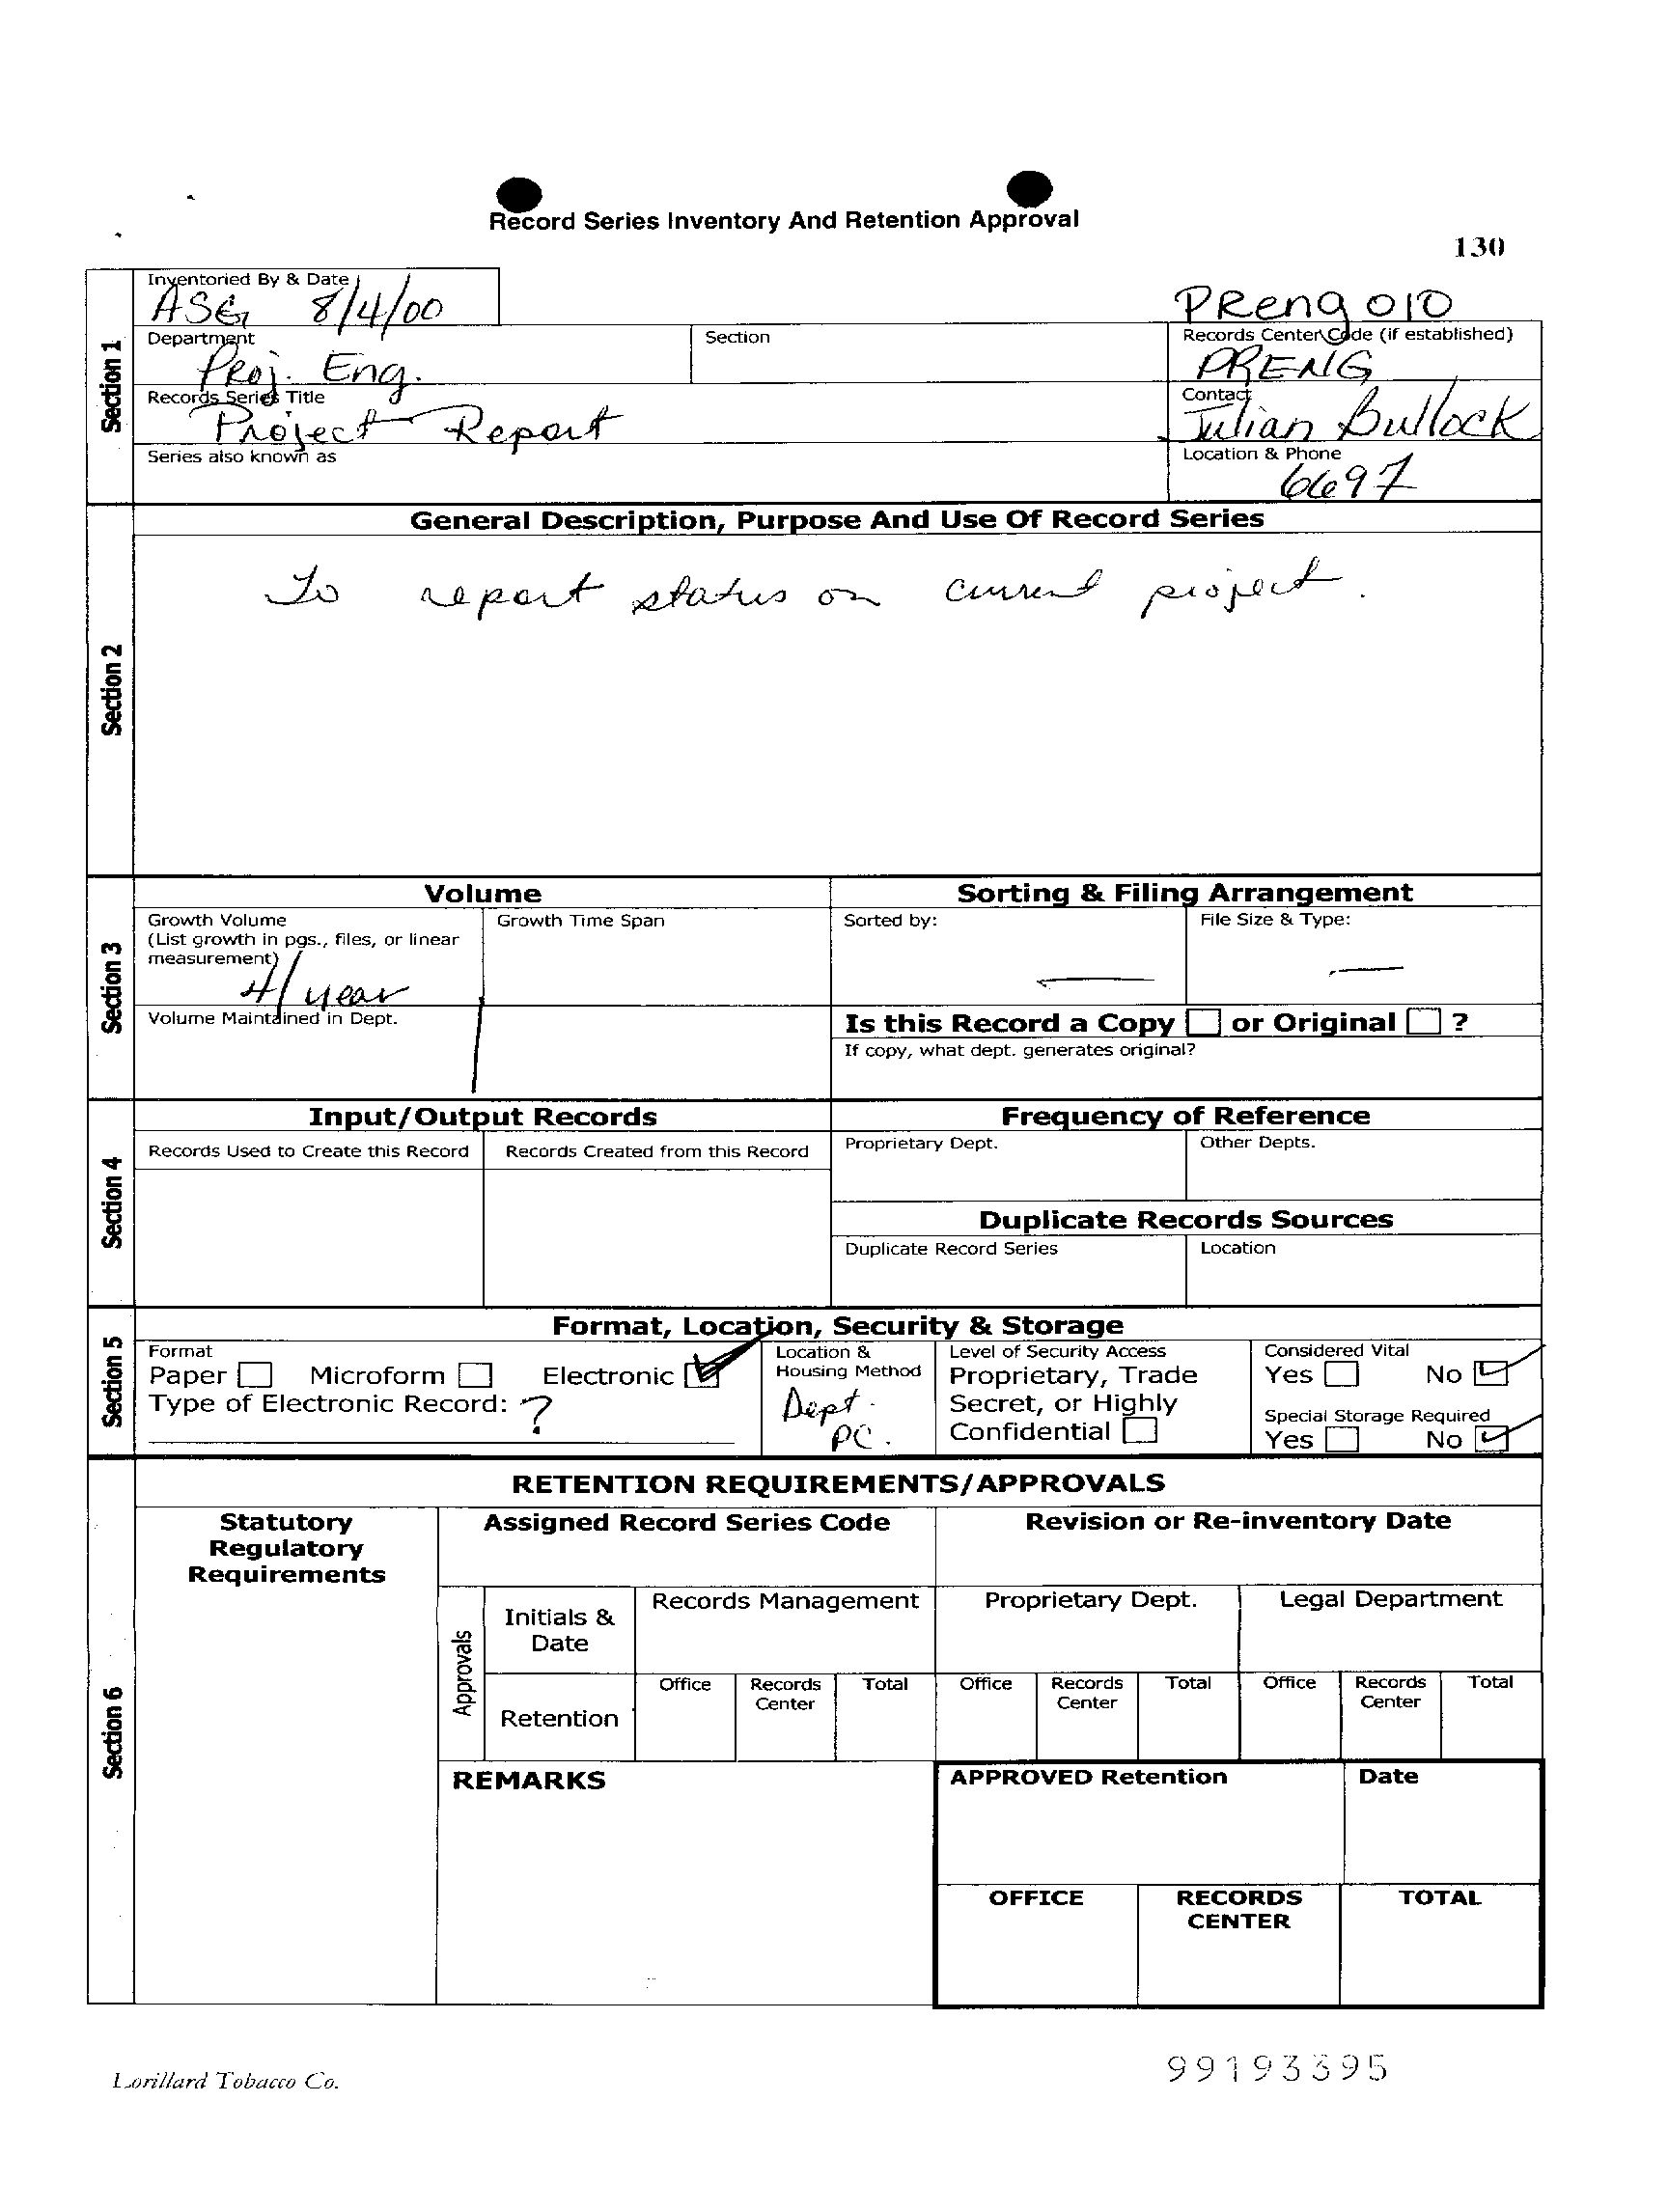 Record Series Inventory And Retention Approval
130
Inventoried By & Date
ASG 8/4/00
PReng 010
Department
Proj. Eng.
Section
Records Center Code (if established)
PRENG
Records Series Title
Project Report
Contact
Julian Bullock
Series also known as
Location & Phone
6697
Section 1
General Description, Purpose And Use Of Record Series
To report status on current project.
Section 2
Volume
Sorting & Filing Arrangement
Growth Volume
(List growth in pgs., files, or linear
measurement)
4/year
Growth Time Span
Sorted by:
—
File Size & Type:
—
Volume Maintained in Dept.
Is this Record a Copy or Original ?
If copy, what dept. generates original?
Section 3
Input/Output Records
Frequency of Reference
Records Used to Create this Record
Records Created from this Record
Proprietary Dept.
Other Depts.
Duplicate Records Sources
Duplicate Record Series
Location
Section 4
Format, Location, Security & Storage
Format
Paper Microform Electronic
Type of Electronic Record: ?
Location &
Housing Method
Dept.
PC.
Level of Security Access
Proprietary, Trade
Secret, or Highly
Confidential
Considered Vital
Yes No
Special Storage Required
Yes No
Section 5
RETENTION REQUIREMENTS/APPROVALS
Statutory
Regulatory
Requirements
Assigned Record Series Code
Revision or Re-inventory Date
Approvals
Initials &
Date
Records Management
Proprietary Dept.
Legal Department
Retention
Office
Records
Center
Total
Office
Records
Center
Total
Office
Records
Center
Total
REMARKS
APPROVED Retention
Date
OFFICE
RECORDS
CENTER
TOTAL
Section 6
Lorillard Tobacco Co.
99193395